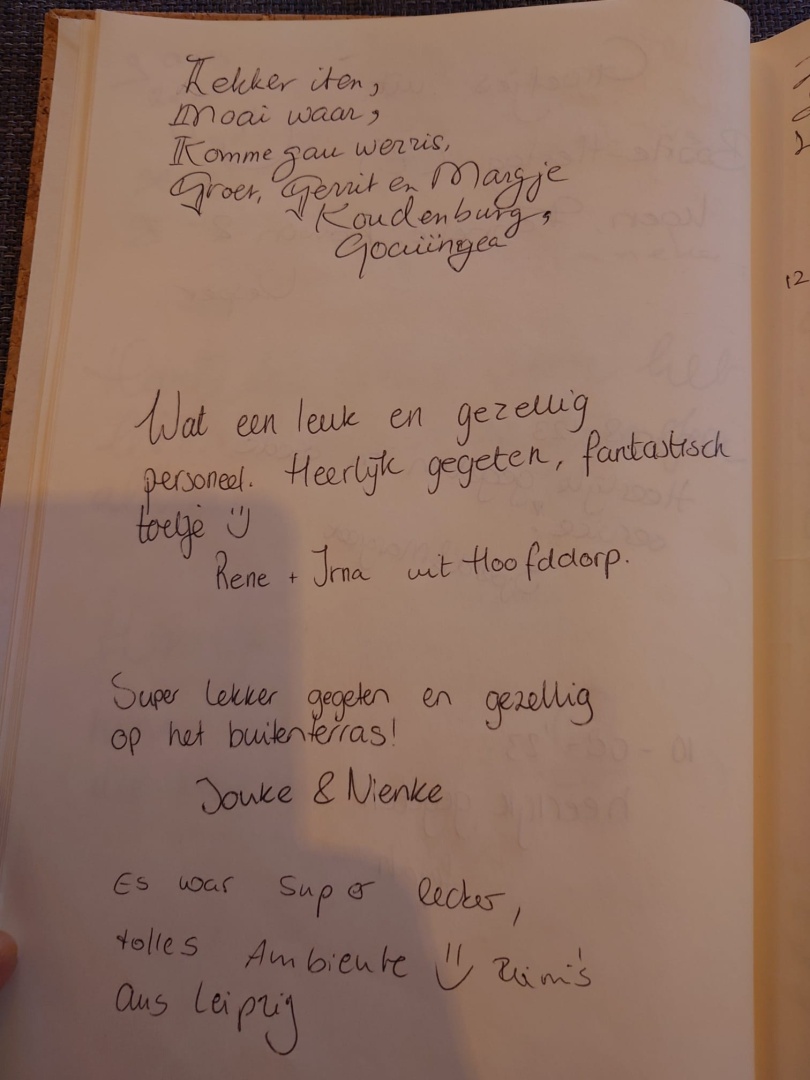 Lekker iten,
Moai waar,
Komme gau werris,
Groet, Gerrit en Margje
Koudenburg,
Wat een leuk en gezellig
personeel. Heerlijk gegeten, fantastisch
toetje
Rene + Irna uit Hoofddorp.
Super lekker gegeten en gezellig
op het buitenterras!
Jouke & Nienke
Es war super lecker,
tolles Ambiente
aus Leipzig
12